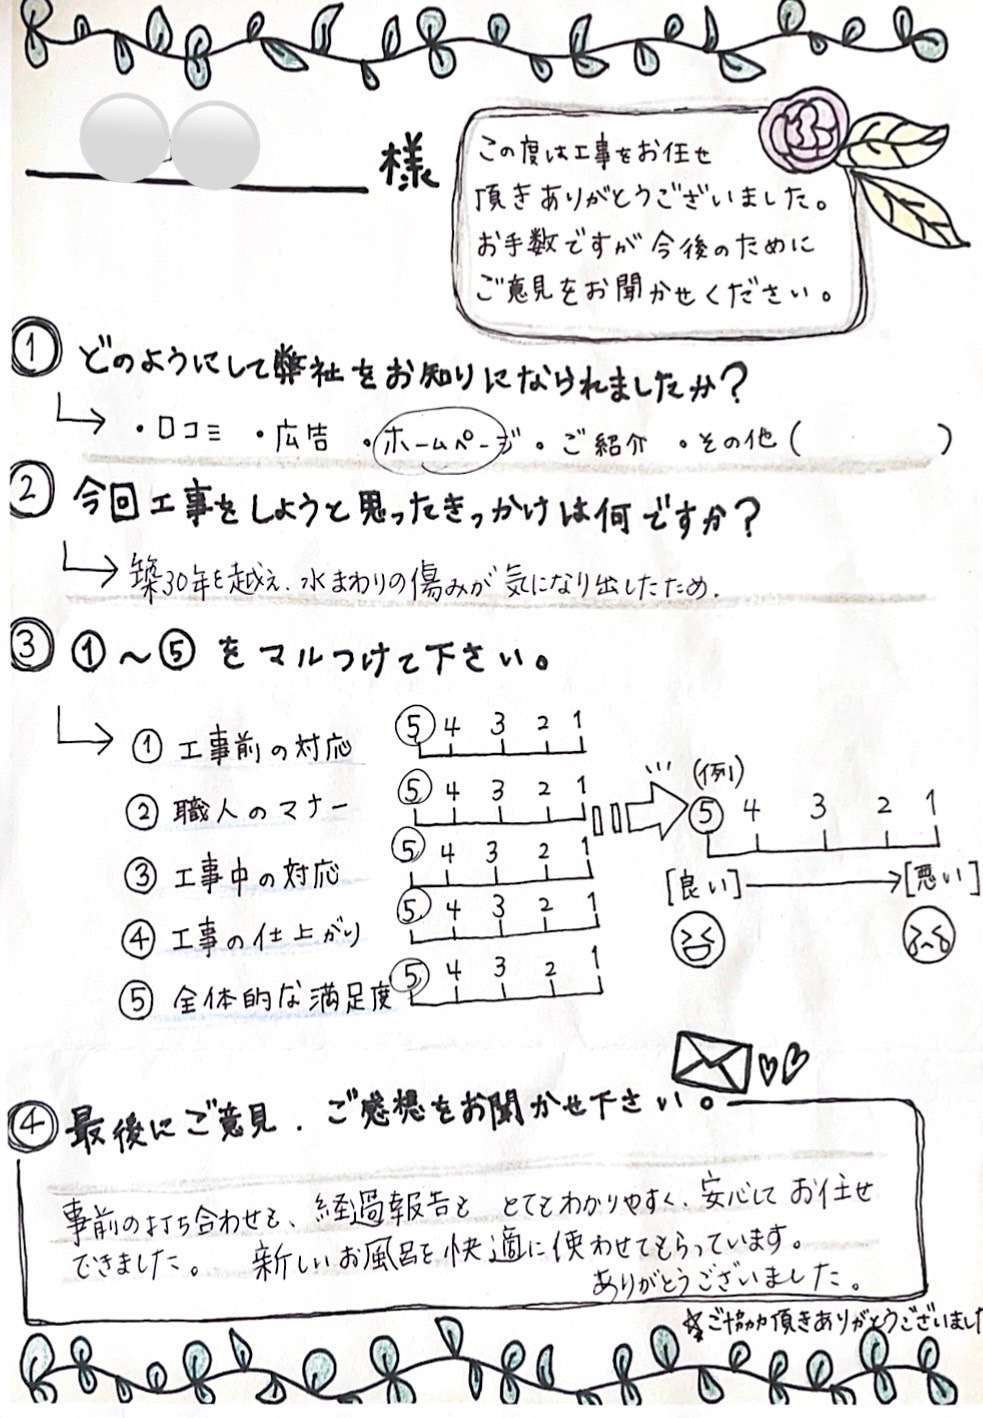 様
この度は工事をお任せ
頂きありがとうございました。
お手数ですが今後のために
ご意見をお聞かせください。
① どのようにして弊社をお知りになられましたか？
・口コミ ・広告 ・ホームページ ・ご紹介 ・その他（ ）
② 今回工事をしようと思ったきっかけは何ですか？
築30年を越え、水まわりの傷みが気になり出したため.
③ ①〜⑤をマルつけて下さい。
① 工事前の対応 5 4 3 2 1
② 職人のマナー 5 4 3 2 1
③ 工事中の対応 5 4 3 2 1
④ 工事の仕上がり 5 4 3 2 1
⑤ 全体的な満足度 5 4 3 2 1
(例)
5 4 3 2 1
[良い] [悪い]
④ 最後にご意見．ご感想をお聞かせ下さい。
事前の打ち合わせも、経過報告も とてもわかりやすく、安心して お任せ
できました。 新しいお風呂を快適に使わせてもらっています。
ありがとうございました。
☆ご協力頂きありがとうございました